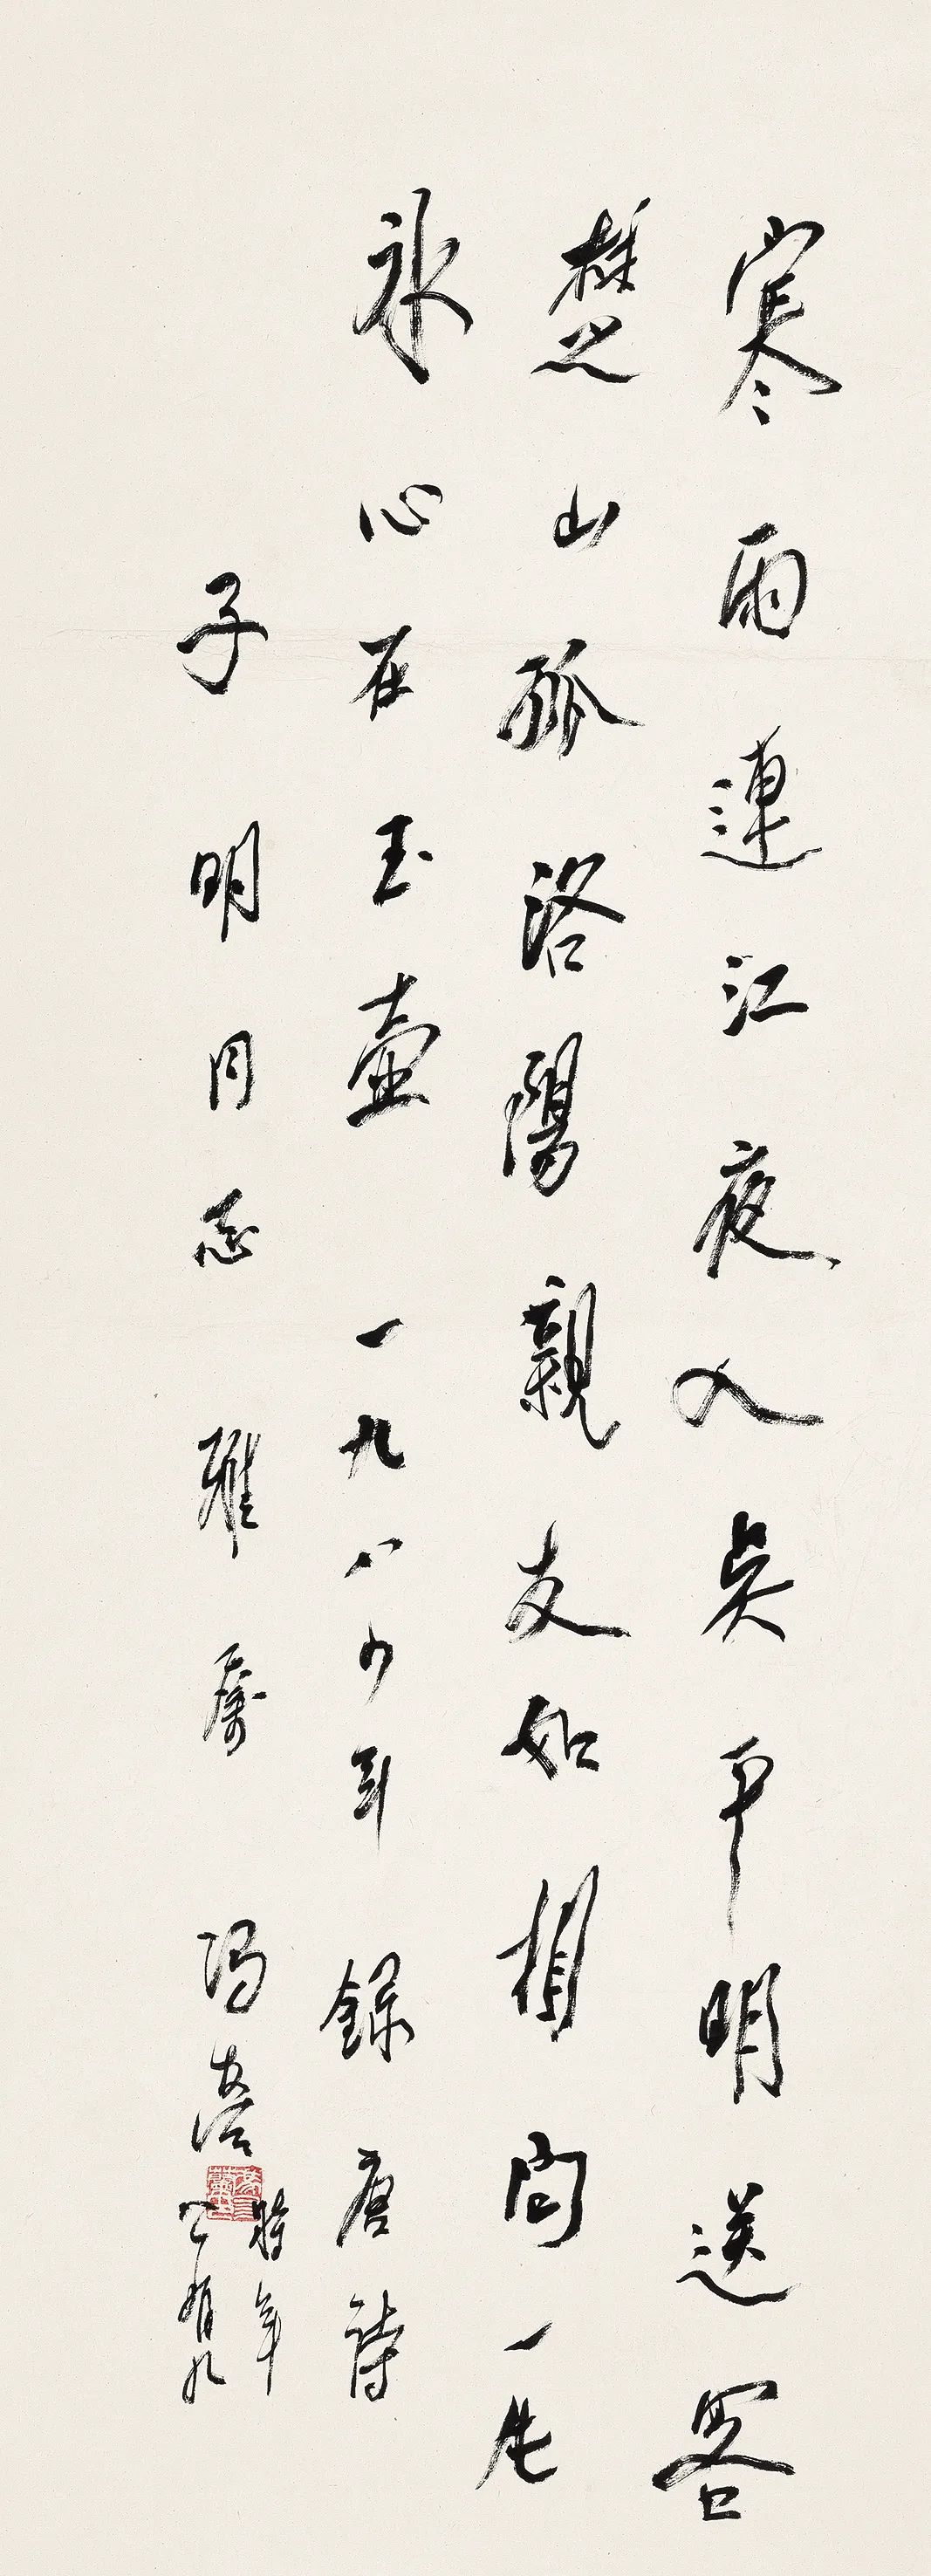 寒雨連江夜入吳平明送客
楚山孤洛陽親友如相問一片
冰心在玉壺 一九八年 錄唐詩
子明同志雅屬 馮
時年
有九